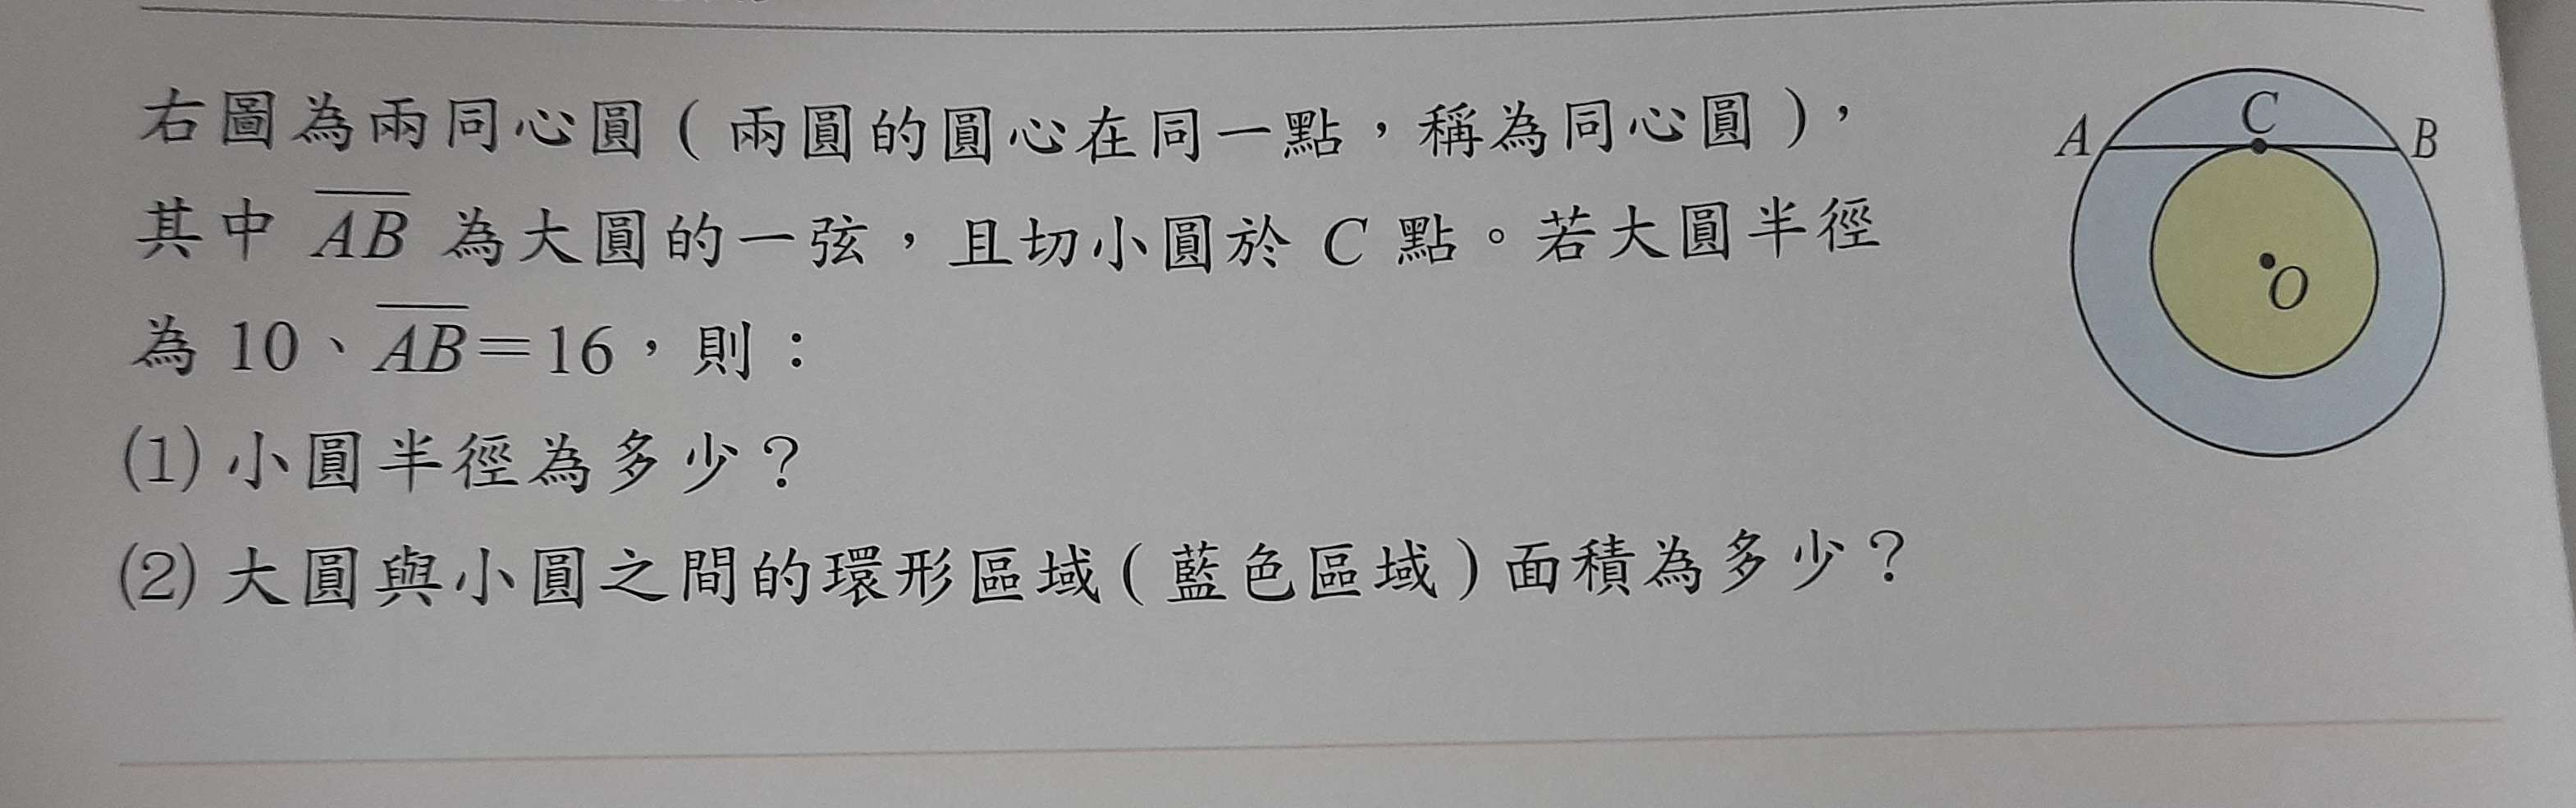 右圖為兩同心圓(兩圓的圓心在同一點,稱為同心圓),
其中 AB 為大圓的一弦,且切小圓於 C 點。若大圓半徑
為 10、AB=16,則:
(1) 小圓半徑為多少?
(2) 大圓與小圓之間的環形區域(藍色區域)面積為多少?
A
C
B
O